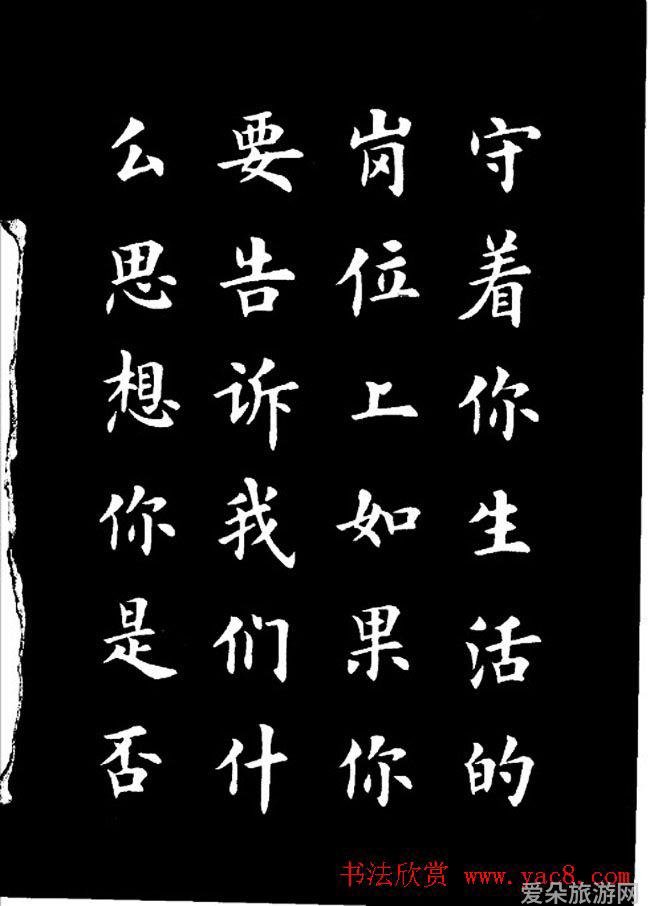 守着你生活的
岗位上如果你
要告诉我们什
么思想你是否
书法欣赏 www.yac8.com
爱朵旅游网